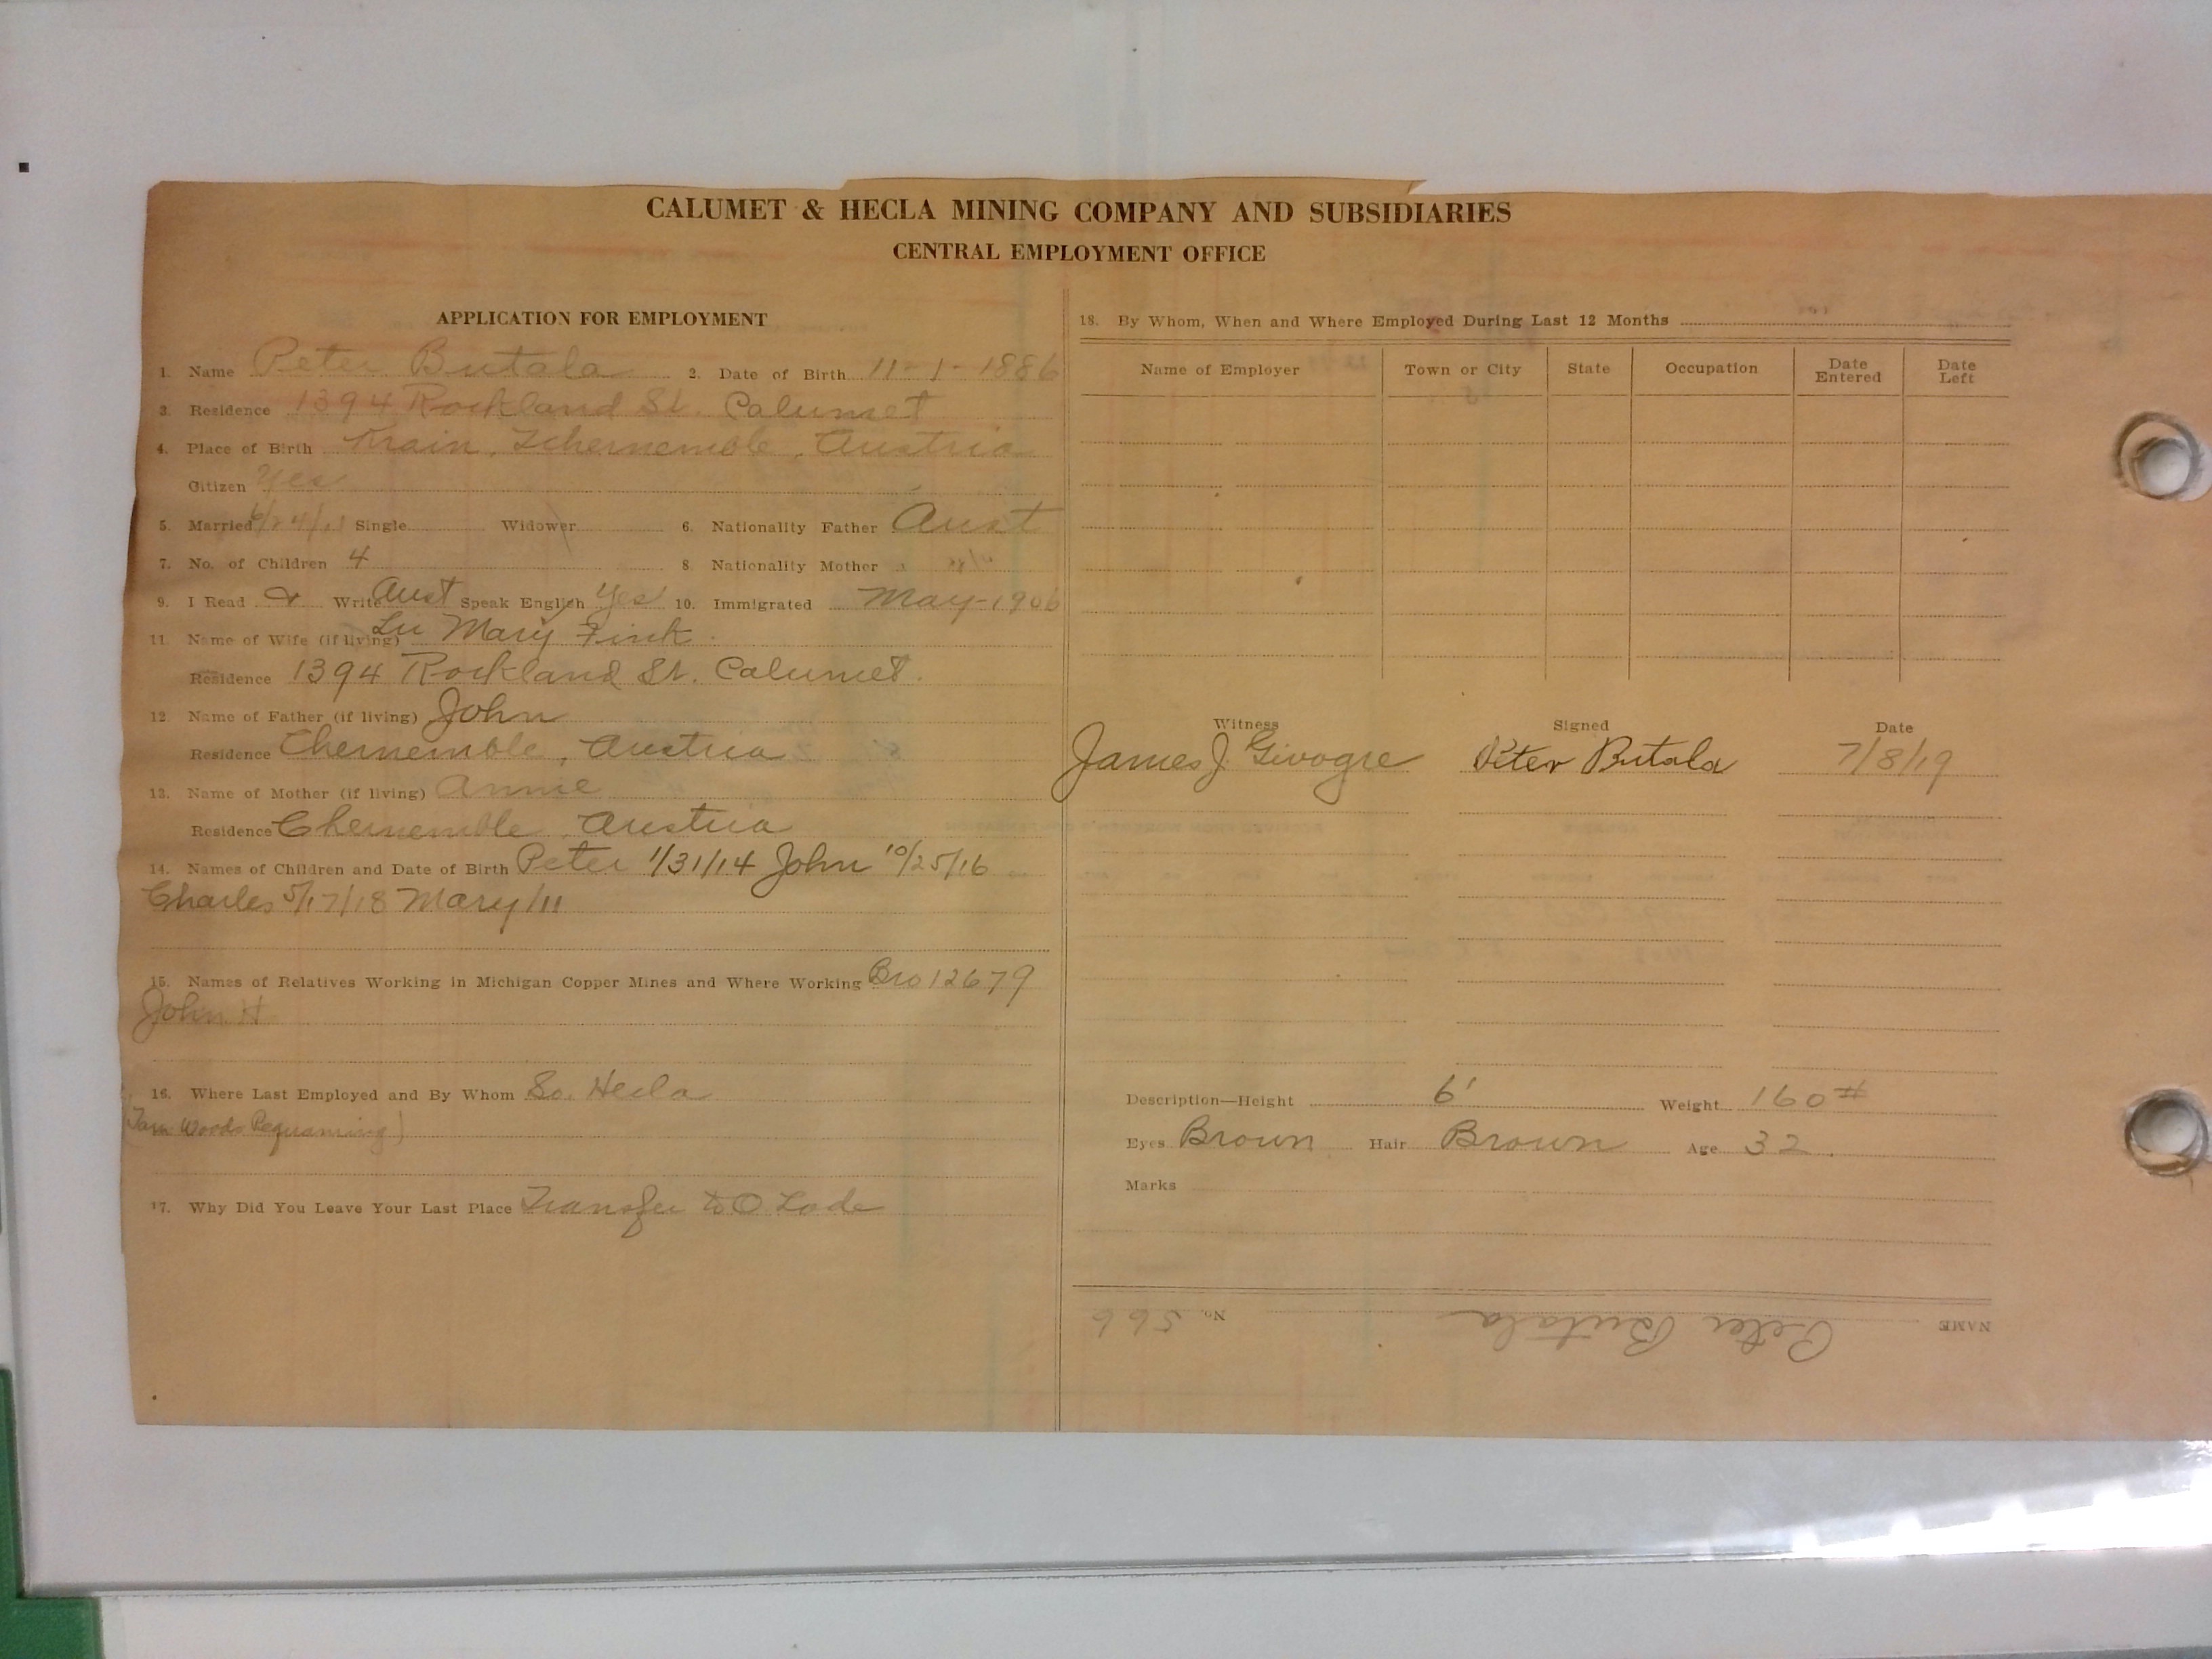 CALUMET & HECLA MINING COMPANY AND SUBSIDIARIES
CENTRAL EMPLOYMENT OFFICE
APPLICATION FOR EMPLOYMENT
1. Name Peter Butala 2. Date of Birth 11-1-1886
3. Residence 1394 Rockland St. Calumet
4. Place of Birth Krain, Tchernemble, Austria
Citizen Yes
5. Married Single Widower 6. Nationality Father Aust
7. No. of Children 4 8. Nationality Mother "
9. I Read & Write Aust Speak English Yes 10. Immigrated May-1906
11. Name of Wife (if living) Mary Fink
Residence 1394 Rockland St. Calumet.
12. Name of Father (if living) John
Residence Chernemble, Austria
13. Name of Mother (if living) Annie
Residence Chernemble, Austria
14. Names of Children and Date of Birth Peter 1/31/14 John 10/25/16
Charles 5/17/18 Mary /11
15. Names of Relatives Working in Michigan Copper Mines and Where Working Bro 12679
John H
16. Where Last Employed and By Whom So. Hecla
Woods Pequaming)
17. Why Did You Leave Your Last Place Transfer to O Lode
18. By Whom, When and Where Employed During Last 12 Months
Name of Employer Town or City State Occupation Date Entered Date Left
Witness Signed Date
James J. Givogre Peter Butala 7/8/19
Description—Height 6' Weight 160#
Eyes Brown Hair Brown Age 32
Marks
NAME Peter Butala No. 566